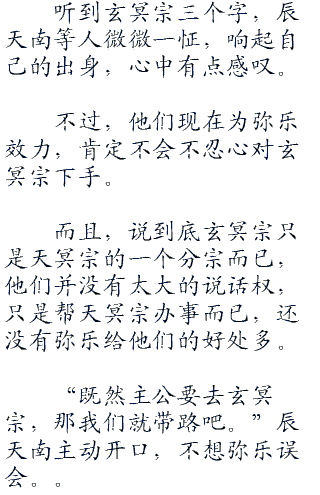 听到玄冥宗三个字，辰
天南等人微微一怔，响起自
己的出身，心中有点感叹。
不过，他们现在为弥乐
效力，肯定不会不忍心对玄
冥宗下手。
而且，说到底玄冥宗只
是天冥宗的一个分宗而已，
他们并没有太大的说话权，
只是帮天冥宗办事而已，还
没有弥乐给他们的好处多。
“既然主公要去玄冥
宗，那我们就带路吧。”辰
天南主动开口，不想弥乐误
会。。